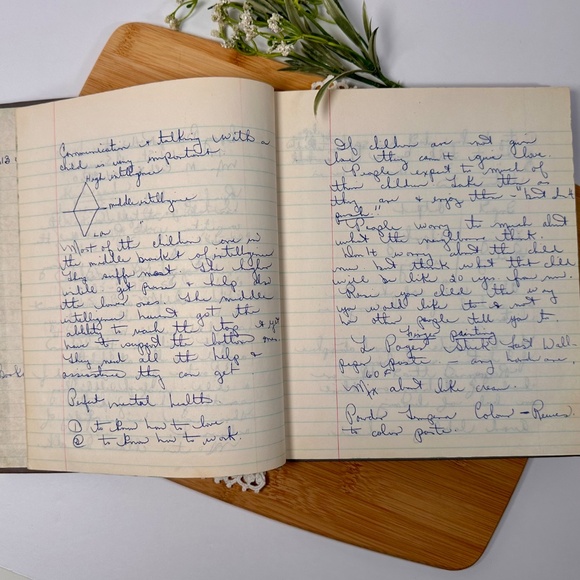 Communication & talking with a
child is very important.
High intelligence
middle intelligence
Low
Most of the children are in
the middle bracket of intelligence
They suffer most. The higher
while get praise & help also
the low ones. The middle
intelligence haven't got the
ability to reach the top & yet
have to support the bottom ones.
They need all the help &
assurance they can get
Perfect mental health
① to know how to love
② to know how to work.
If children are not given
love they can't give love.
People expect to much of
their children. Take them as
they are & enjoy the
People worry to much about
what the neighbors think.
Don't worry about the child
now but think what that child
will be like 20 yrs from now.
Raise your children the way
you would like to & not
how other people tell you to.
finger painting
Wall-
paper paste any hard one.
60
Mix about like cream.
Powder Color
to color paste.